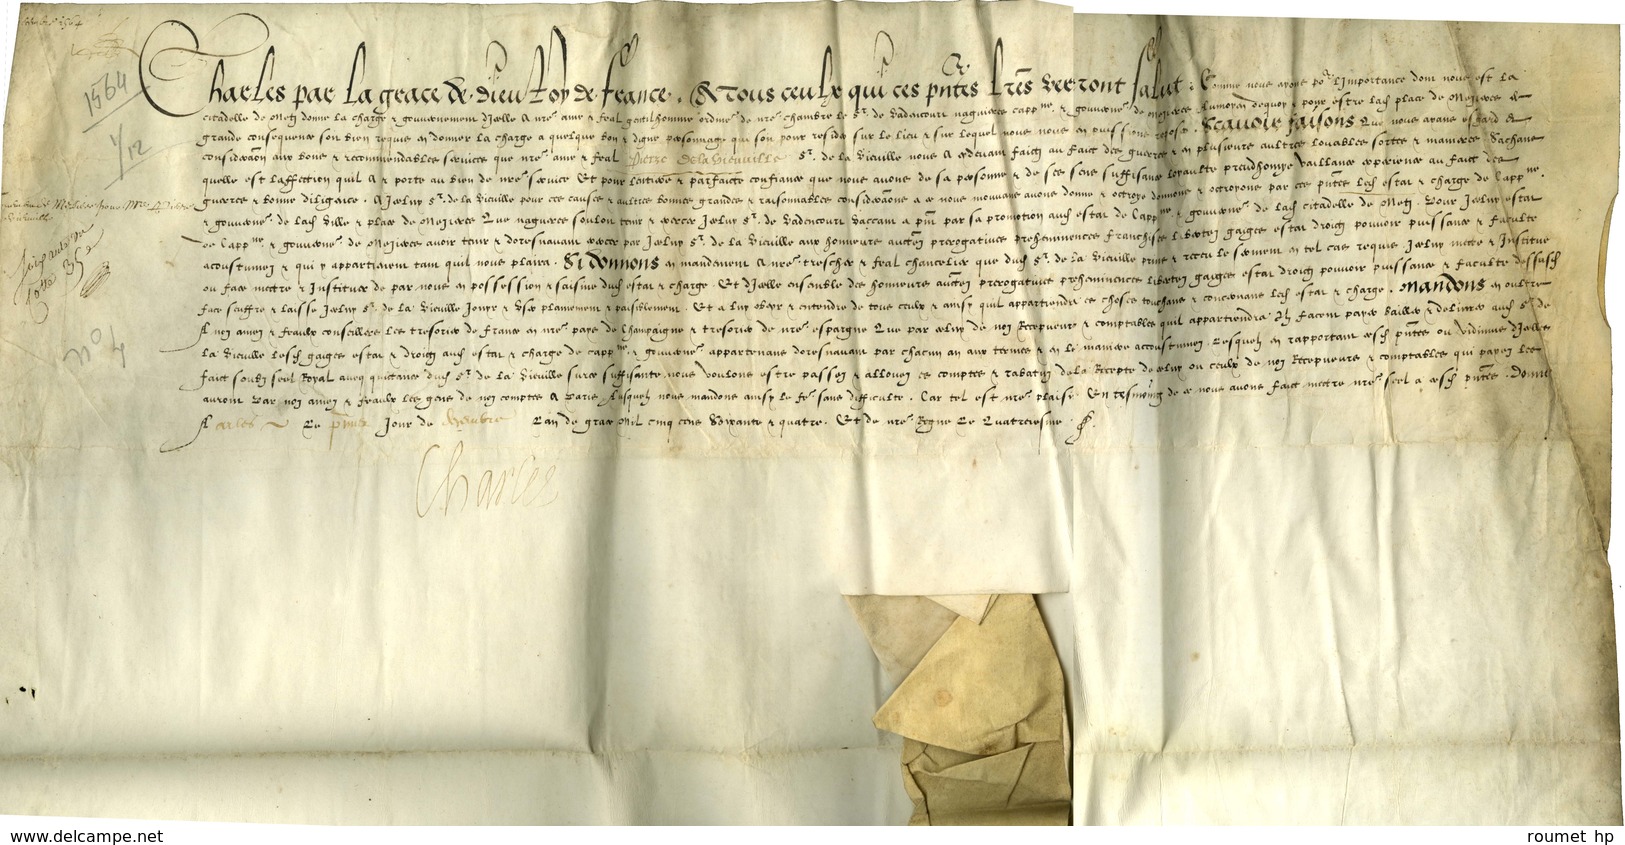 1564
1/12
n° 4
Charles par La grace de dieu Roy de france . A Tous ceulx qui ces pntes Lres verront salut . Comme nous ayons por Limportance dont nous est la
citadelle de Metz donne la charge & gouvernement dicelle A nre ame & feal gentilhomme ordinre de nre chambre le Sr de Vadencourt nagueres cappne & gouverneur de mezieres Au moyen dequoy & pour estre lad place de Mezieres de
grande consequence soit bien requis en donner la charge a quelque bon & digne personnage qui soit pour resider sur le lieu & sur lequel nous nous en puissions reposer . Scavoir faisons Que nous ayans esgard &
consideraon aux bons & recommendables services que nre ame & feal Pierre de la Vieuville Sr de la Vieuville nous A cydevant faictz au faict des guerres & en plusieurs aultres louables sortes & manieres Sachans
quelle est laffection quil A & porte au bien de nre service Et pour lentiere & parfaicte confiance que nous avons de sa personne & de ses sens suffisance loyaulte preudhomye vaillance experience au faict des
guerres & bonne diligence . A Icelluy Sr de la Vieuville pour ces causes & aultres bonnes grandes & raisonnables consideraons a ce nous mouvans avons donne & octroye donnons & octroyons par ces pntes lad estat & charge de cappne
& gouverneur de lad ville & place de Mezieres Que nagueres souloit tenir & exercer Icelluy Sr de Vadencourt vaccant a pnt par sa promotion aud estat de cappne & gouverneur de lad citadelle de Metz . Pour Icelluy estat
de cappne & gouverneur de Mezieres avoir tenir & doresnavant exercer par Icelluy Sr de la Vieuville aux honneurs auctez prerogatives preheminences franchises libertez gaiges estat droictz pouvoir puissance & faculte
acoustumez & qui y appartiennent tant quil nous plaira . Si donnons en mandement A nre trescher & feal chancelier que dud Sr de la Vieuville prins & receu le serment en tel cas requis Icelluy mette & Institue
ou face mettre & Instituer de par nous en possession & saisine dud estat & charge . Et dicelle ensemble des honneurs auctez prerogatives preheminences libertez gaiges estat droictz pouvoir puissance & faculte dessusd
face seuffre & laisse Icelluy Sr de la Vieuville Jouyr & user plainement & paisiblement . Et a luy obeyr & entendre de tous ceulx & ainsy quil appartiendra es choses touchans & concernans led estat & charge . Mandons en oultre
A noz amez & feaulx conseillers les tresoriers de France en nre pays de Champaigne & tresorier de nre espargne Que par celuy de noz Receveurs & comptables quil appartiendra Ilz facent payer bailler & delivrer aud Sr de
la Vieuville lesd gaiges estat & droictz aud estat & charge de cappne & gouverneur appartenans doresnavant par chacun an aux termes & en la maniere accoustumez . Lesquelz en rapportant cesd pntes ou vidimus dicelles
faict soubz seel Royal avec quictance dud Sr de la Vieuville surce suffisante nous voulons estre passez & allouez es comptes & rabatuz de la Recepte de celuy ou ceulx de noz Receveurs & comptables qui payez les
auront par noz amez & feaulx les gens de noz comptes A Paris Ausquelz nous mandons ainsy le fe sans difficulte . Car tel est nre plaisir . En tesmoing de ce nous avons faict mettre nre seel a cesd pntes . Donne
A Arles Le pmier Jour de decembre Lan de grace Mil cinq cens Soixante & quatre . Et de nre Regne Le Quatreiesme .
Charles
www.delcampe.net
roumet_hp